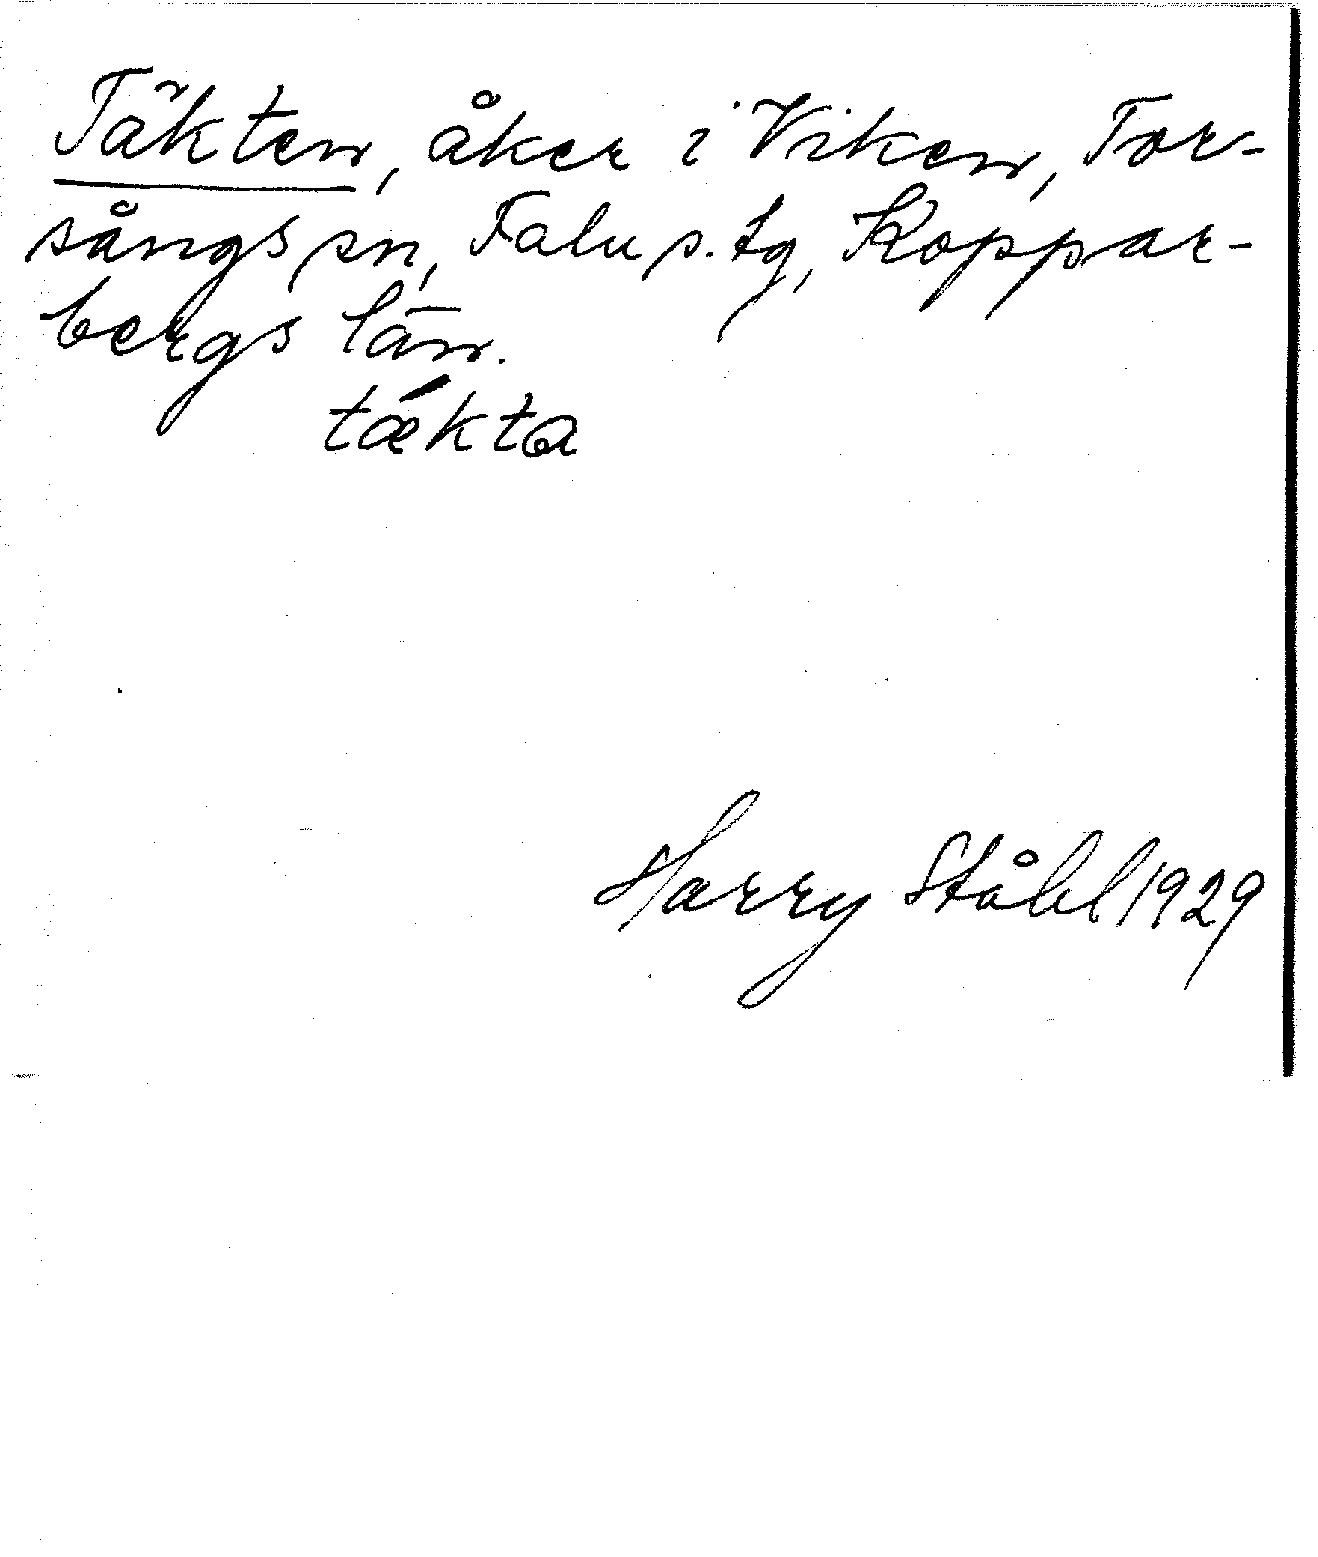 Täkten, åker i Viken, Tor-
sångs sn, Falu s. tg, Koppar-
bergs län.
tǽkta
Harry Ståhl 1929